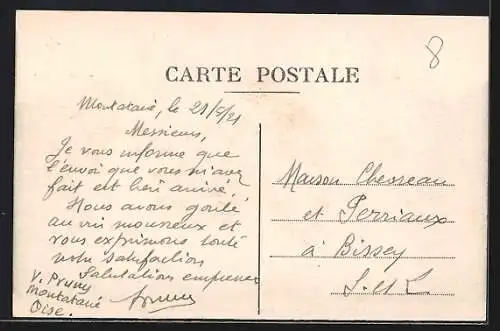 8
CARTE POSTALE
Montataire, le 21/5/21
Messieurs,
Je vous informe que
l'envoi que vous m'avez
fait est bien arrivé.
Nous avons goûté
au vin mousseux et
vous exprimons toute
notre satisfaction
Salutations empressées
V. Pruny
Montataire
Oise.
Maison Chesneau
et Perriaux
à Bissey
S.-et-L.